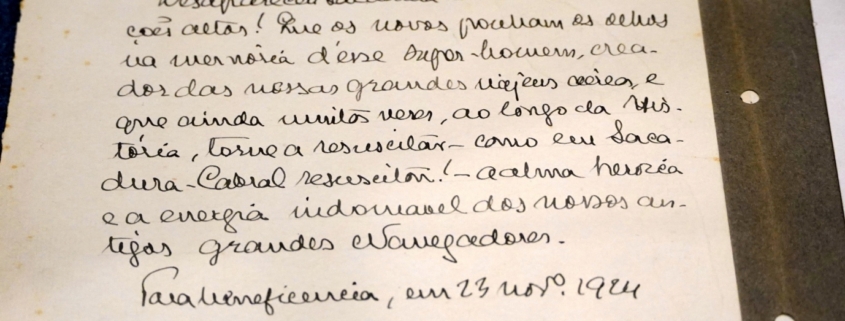 ções altas! Que os novos ponham os olhos
na memória d'ésse Super-homem, crea-
dor das nossas grandes viajens aéreas, e
que ainda muitas vezes, ao longo da His-
tória, torne a resuscitar — como em Saca-
dura-Cabral resuscitou! — a alma heroéa
e a energia indomavel dos nossos an-
tigos grandes Navegadores.
Para beneficencia, em 23 novº. 1924